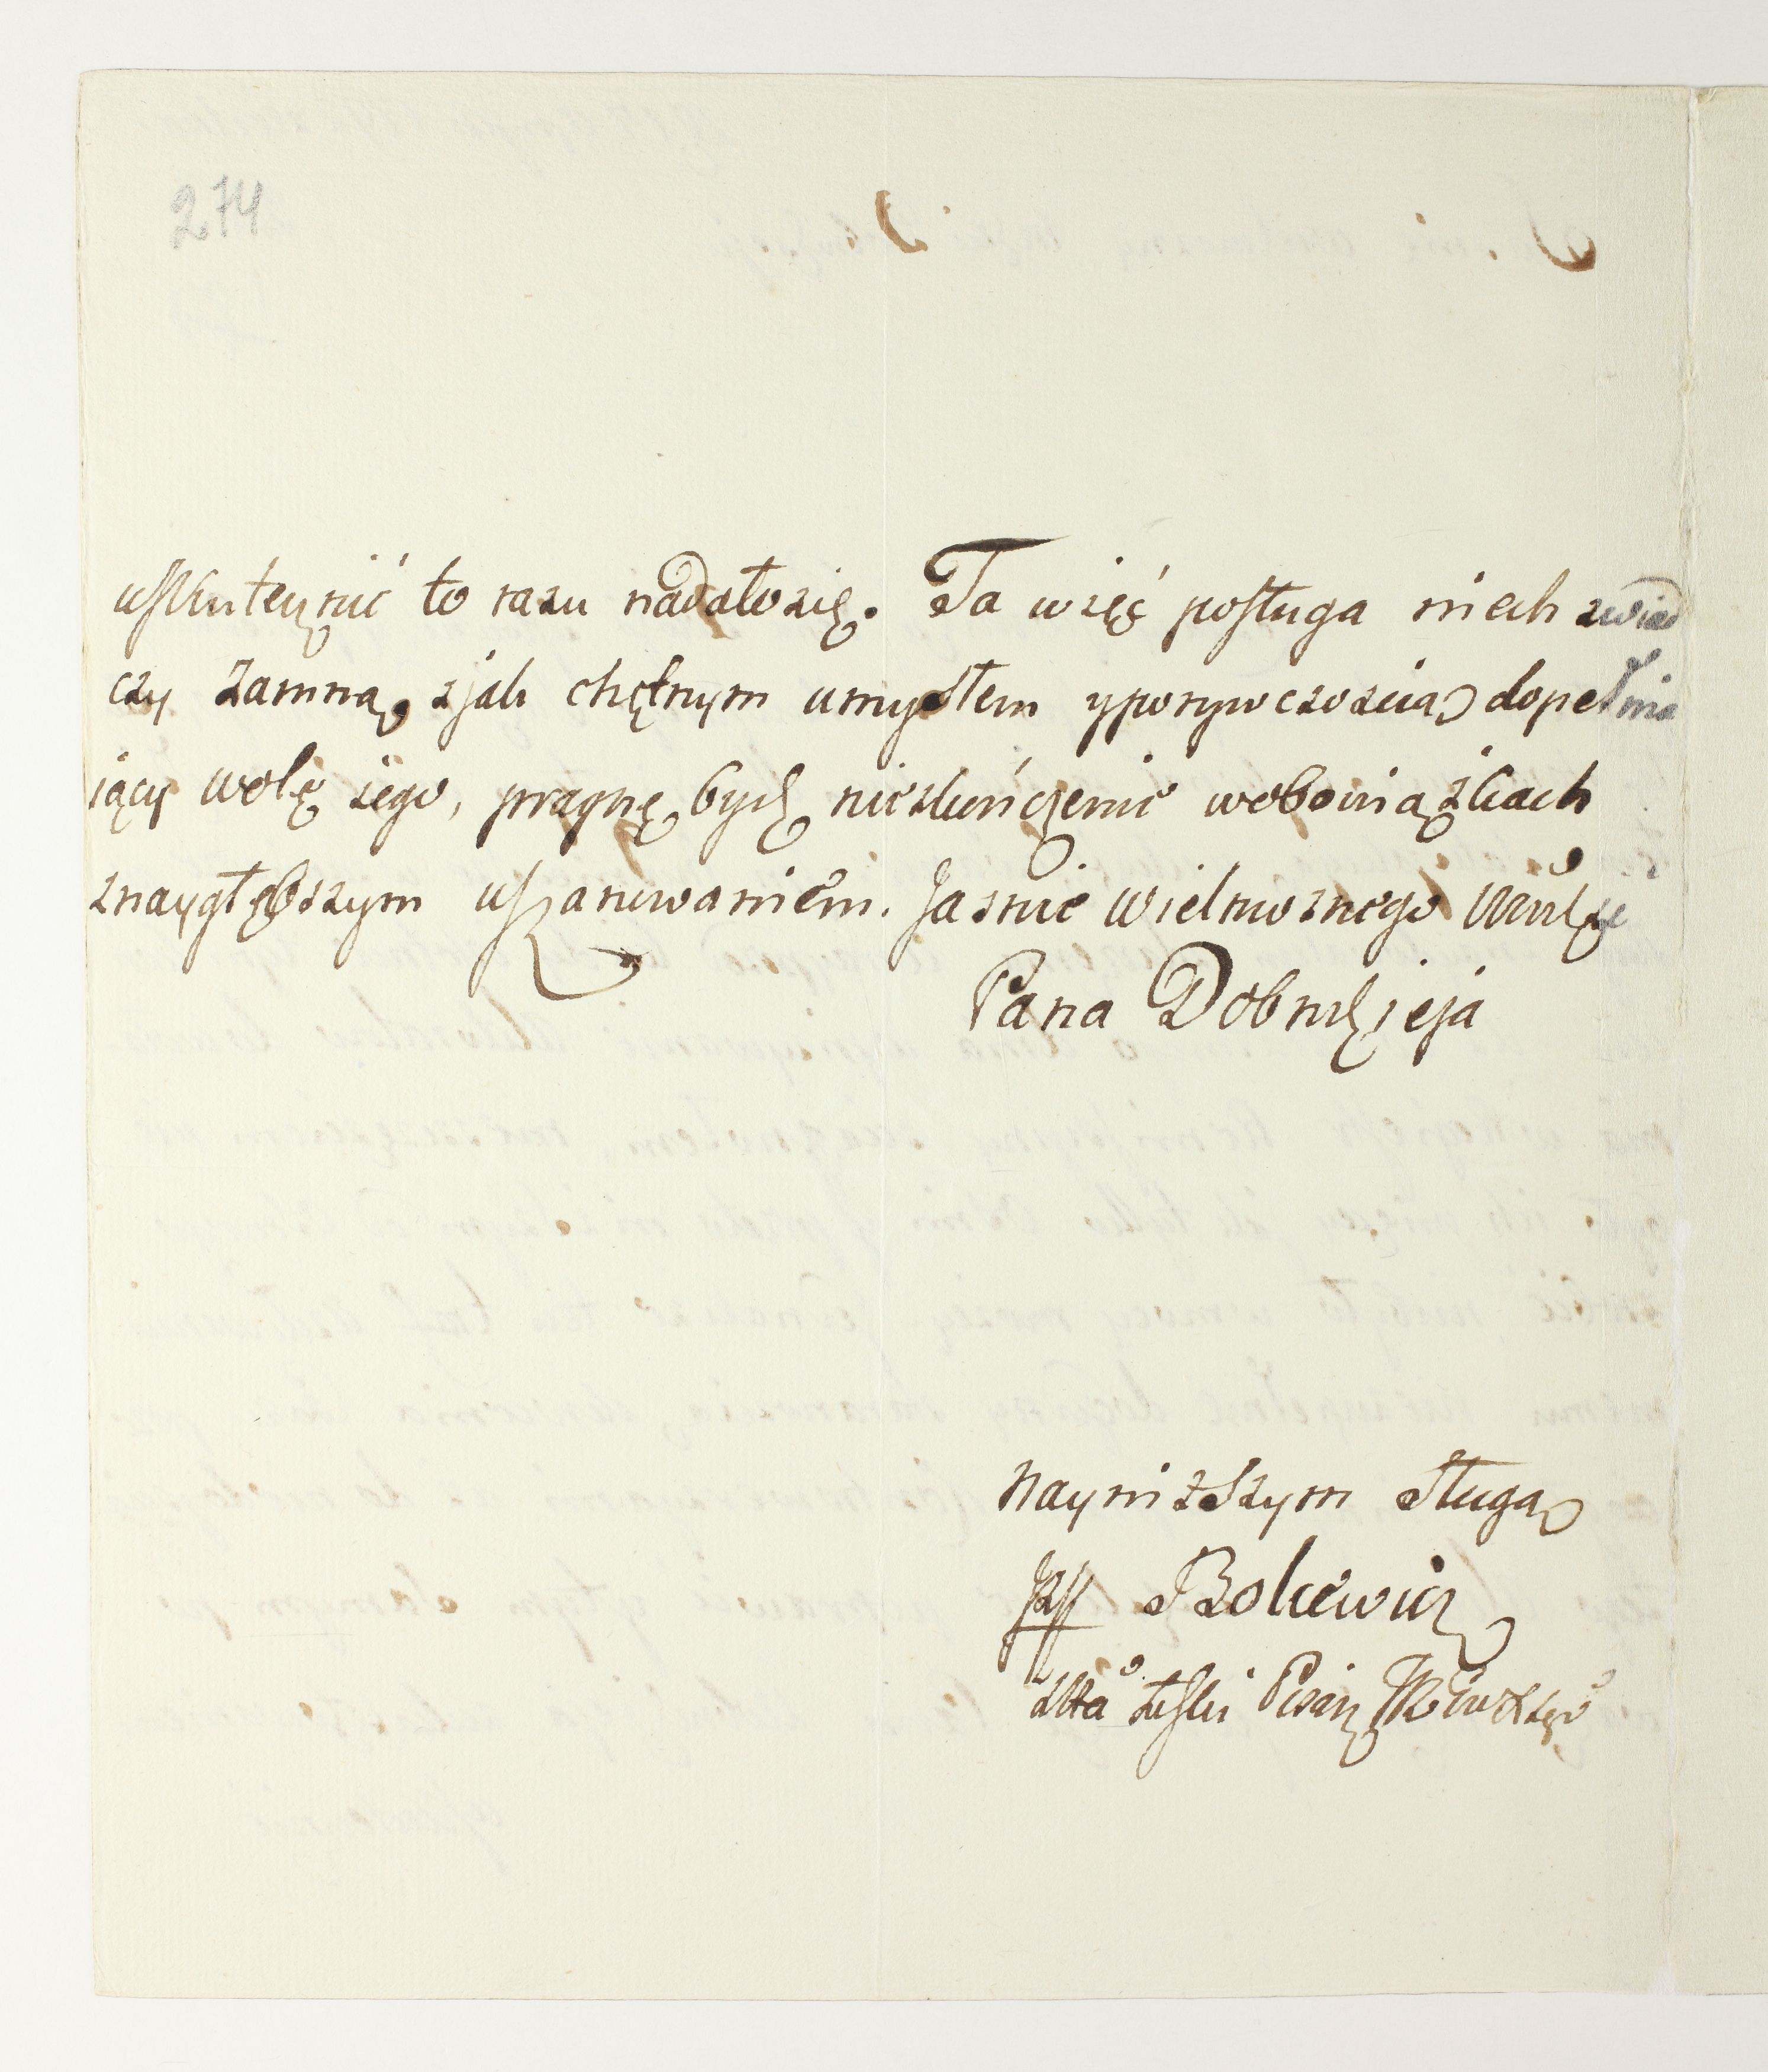 274
uskutecznić to razu nadałosię. Ta więć posługa niech zwiad
czy zamną, zjak chętnym umysłem yporywczoscią dopełnia
iący wolę iego, pragnę bydź nieskończenie wobowiązkach
znaygłębszym uszanowaniem. Jasnie Wielmoznego
Pana Dobrodzieja
Nayniższym sługą
Bokiewicz
Pisarz